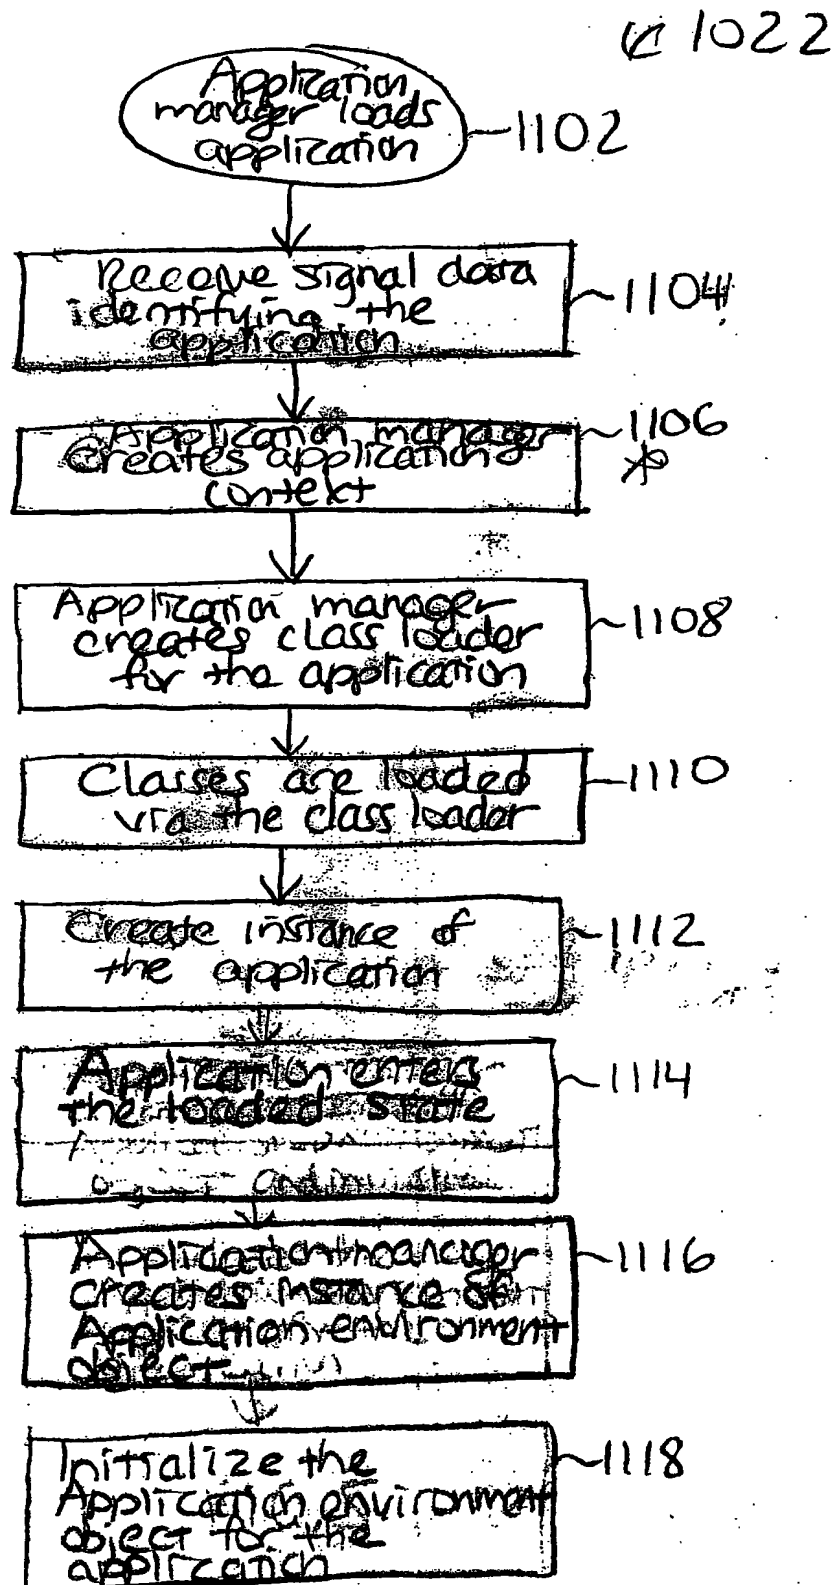 1022
Application
manager loads
application
1102
Receive signal data
identifying the
application
1104
Application manager
creates application
context
1106
*
Application manager
creates class loader
for the application
1108
Classes are loaded
via the class loader
1110
Create instance of
the application
1112
Application enters
the loaded state
1114
Application manager
creates instance of
Application environment
object
1116
Initialize the
Application environment
object for the
application
1118